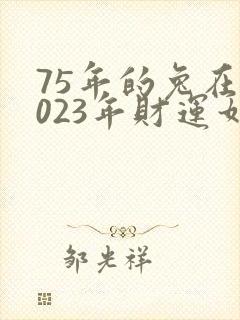 75年的兔在
023年财運
邹光祥